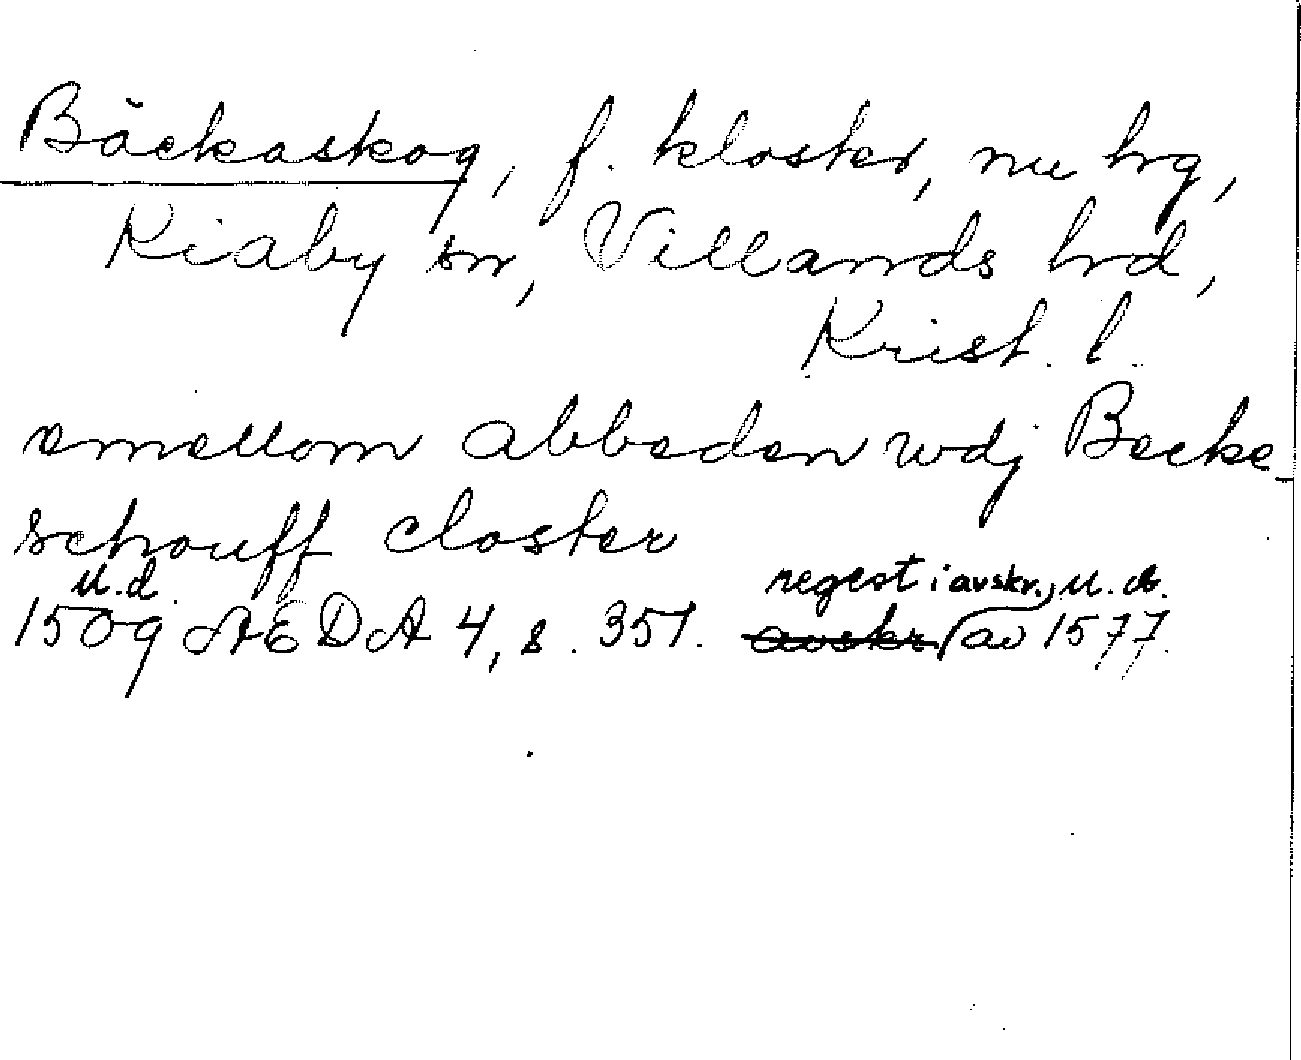 Bäckaskog, f. kloster, nu hrg,
Kiaby sn, Villands hrd,
Krist. l.
emellom abbeden wdj Becke-
schouff closter
u.d.
1509 AEDA 4, s. 351. avskr. regest i avskr., u.d. av 1577.